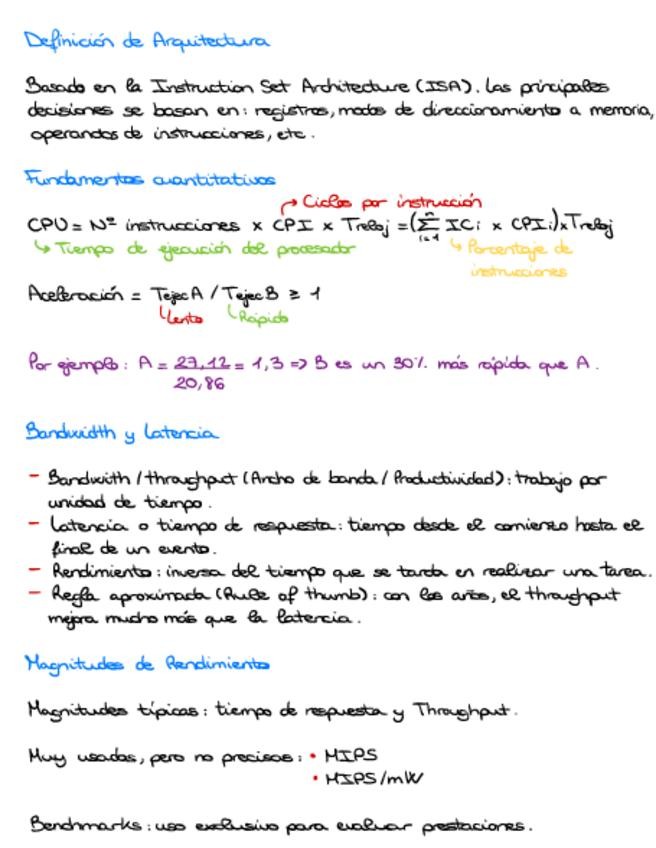 Definición de Arquitectura
Basado en la Instruction Set Architecture (ISA). Las principales
decisiones se basan en: registros, modos de direccionamiento a memoria,
operandos de instrucciones, etc.
Fundamentos cuantitativos
Ciclos por instrucción
CPU = Nº instrucciones x CPI x Treloj = (∑ⁿᵢ₌₁ ICi x CPIi) x Treloj
↳ Tiempo de ejecución del procesador ↳ Porcentaje de
instrucciones
Aceleración = TejecA / TejecB ≥ 1
↳Lento ↳Rápido
Por ejemplo: A = 27,12 = 1,3 => B es un 30% más rápida que A.
20,86
Bandwidth y Latencia
- Bandwith / throughput (Ancho de banda / Productividad): trabajo por
unidad de tiempo.
- Latencia o tiempo de respuesta: tiempo desde el comienzo hasta el
final de un evento.
- Rendimiento: inversa del tiempo que se tarda en realizar una tarea.
- Regla aproximada (Rule of thumb): con los años, el throughput
mejora mucho más que la latencia.
Magnitudes de Rendimiento
Magnitudes típicas: tiempo de respuesta y Throughput.
Muy usadas, pero no precisas: • MIPS
• MIPS/mW
Benchmarks: uso exclusivo para evaluar prestaciones.